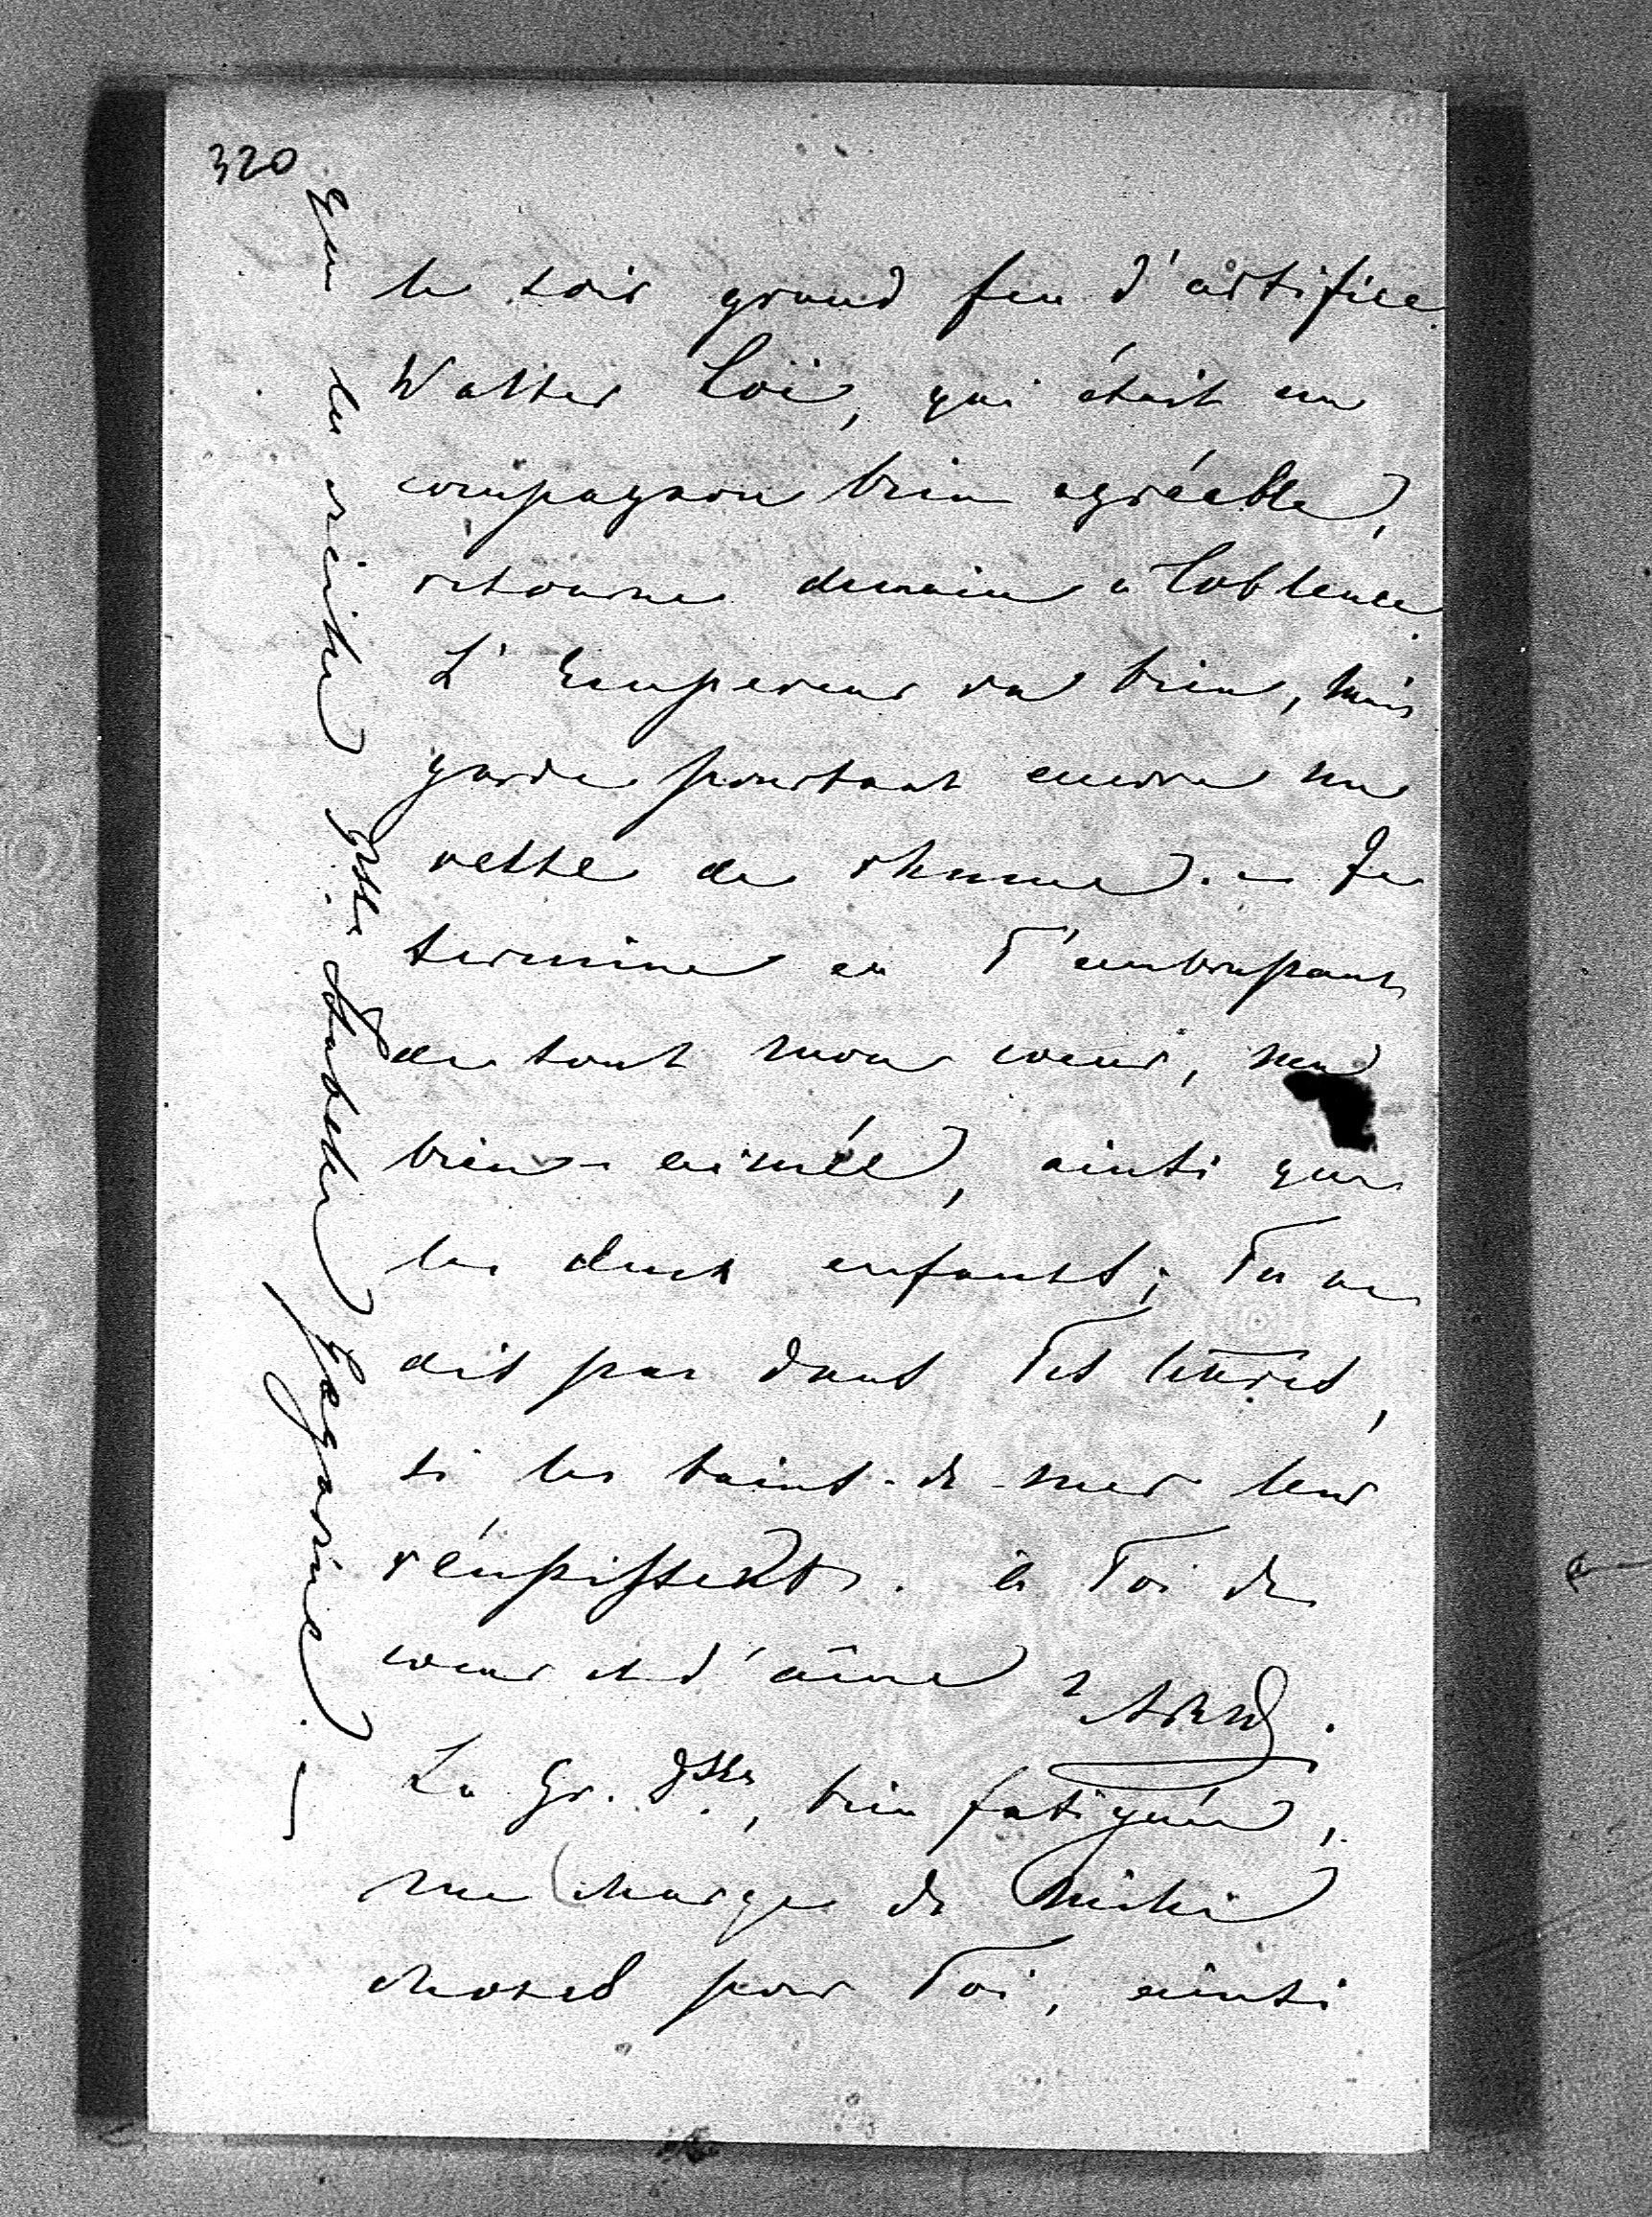 320
le soir grand feu d'artifice.
Walter Loë, qui était un
compagnon bien agréable,
retourne demain a Coblence.
L'Empereur va bien, mais
garde pourtant encore un
reste de rhume. – Je
termine en T'embrassant
de tout mon coeur, ma
bien-aimée, ainsi que
les deux enfants; Tu ne
dis pas dans Tes lettres,
si les bains-de-mer leur
réussissent. à Toi de
coeur et d'âme
La Gr. Dsse, bien fatiguée,
me charge de mille
choses pour Toi, ainsi
que la vieille